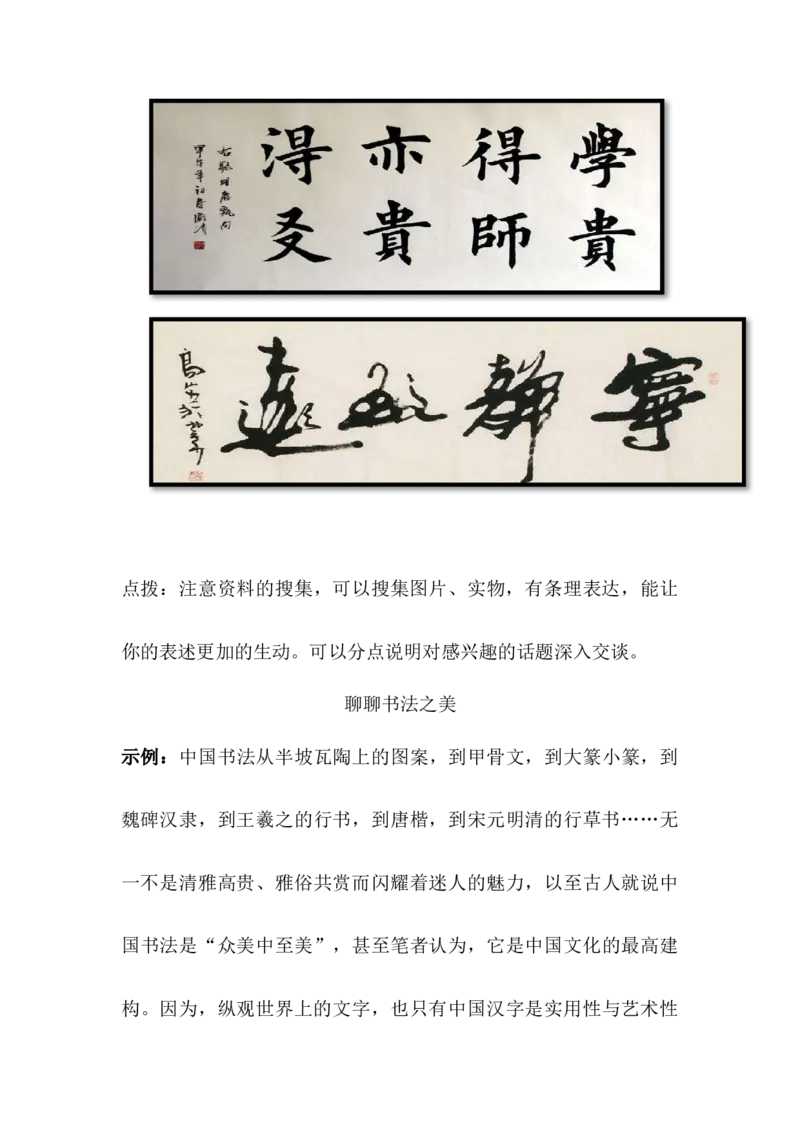 學貴
得師
亦貴
淂友
寧靜致遠
点拨：注意资料的搜集，可以搜集图片、实物，有条理表达，能让
你的表述更加的生动。可以分点说明对感兴趣的话题深入交谈。
聊聊书法之美
示例：中国书法从半坡瓦陶上的图案，到甲骨文，到大篆小篆，到
魏碑汉隶，到王羲之的行书，到唐楷，到宋元明清的行草书……无
一不是清雅高贵、雅俗共赏而闪耀着迷人的魅力，以至古人就说中
国书法是“众美中至美”，甚至笔者认为，它是中国文化的最高建
构。因为，纵观世界上的文字，也只有中国汉字是实用性与艺术性